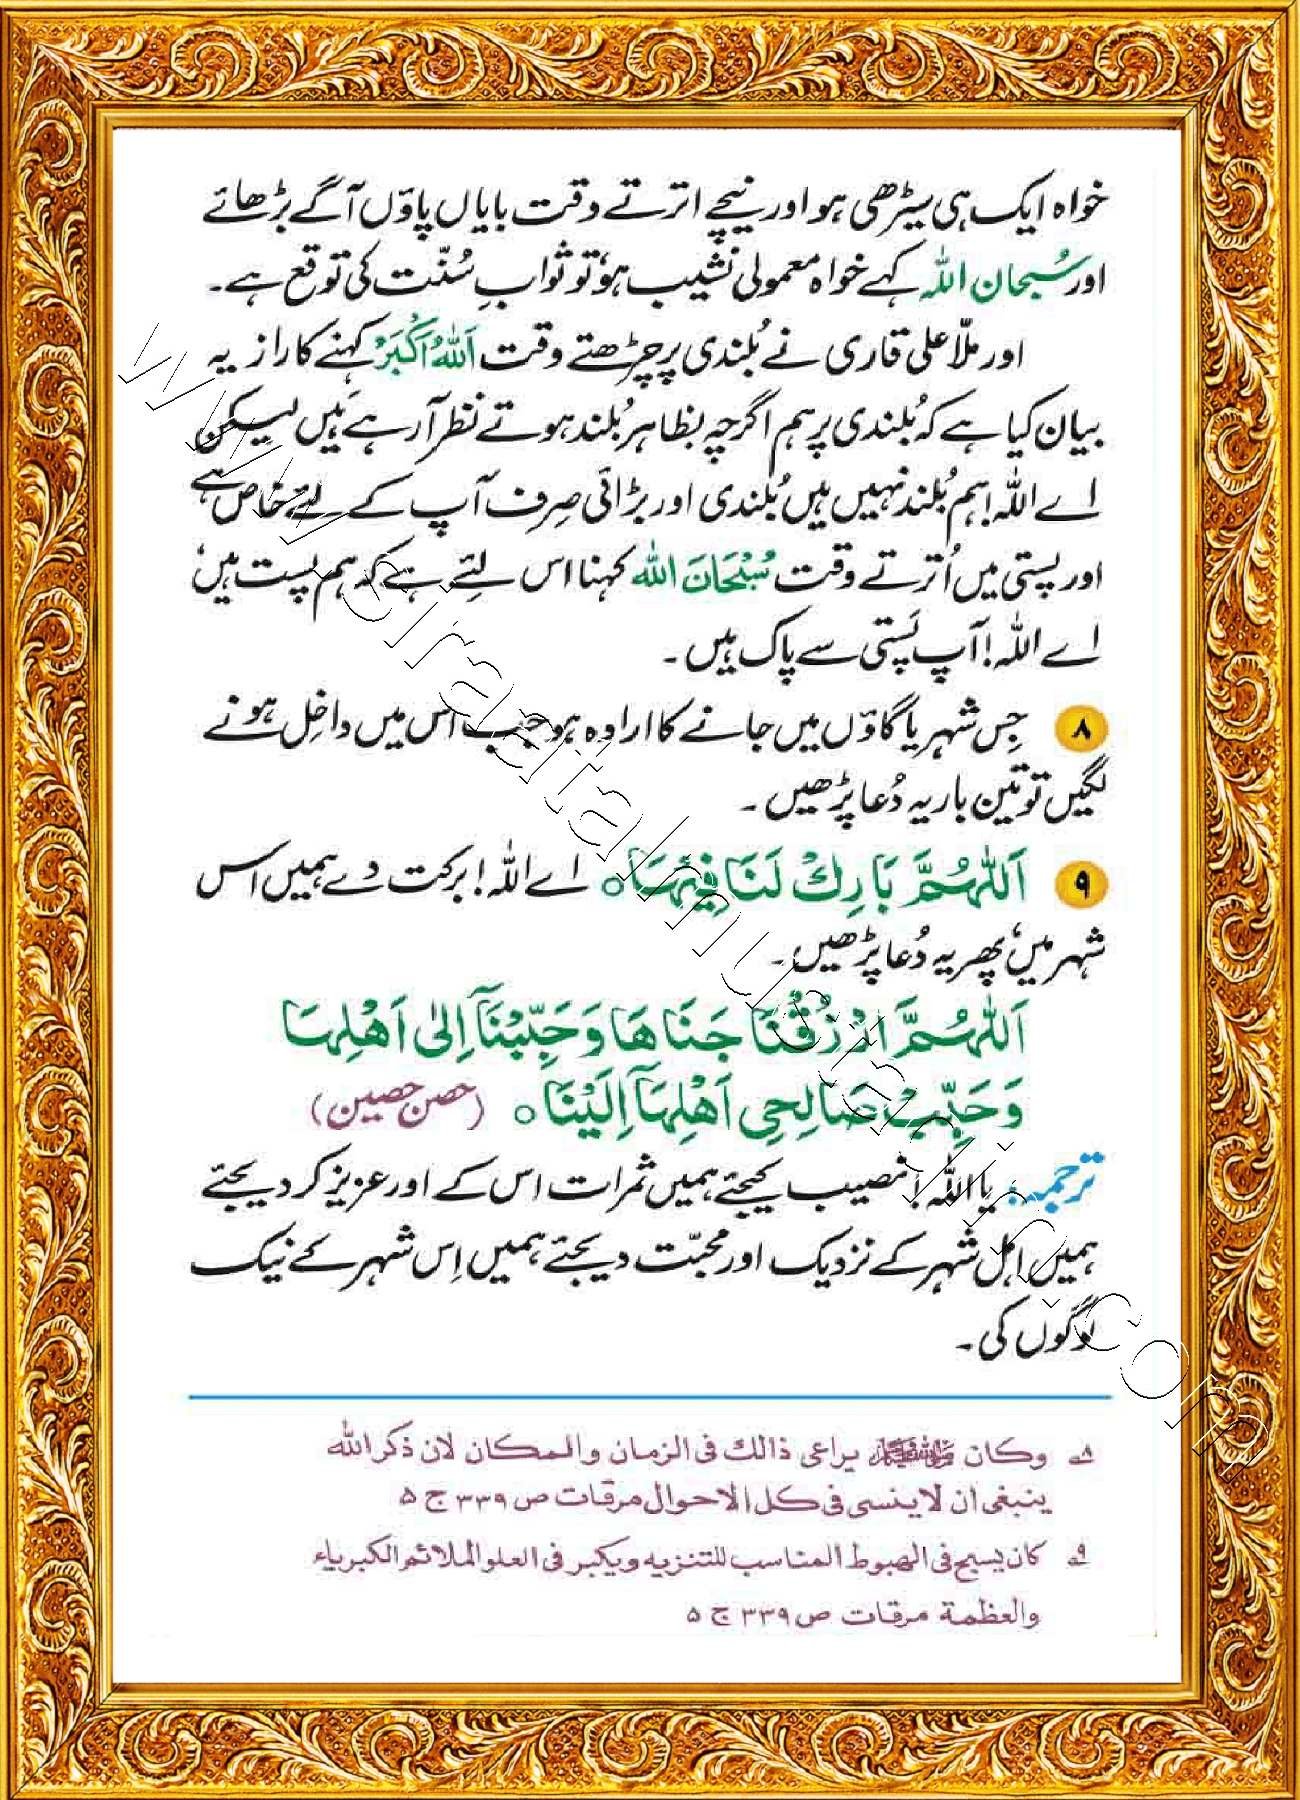 خواہ ایک ہی سیڑھی ہو اور نیچے اترتے وقت بایاں پاؤں آگے بڑھائے
اور سُبحان اللہ کہے خواہ معمولی نشیب ہو، تو ثوابِ سُنّت کی توقع ہے۔
اور ملّا علی قاری نے بُلندی پر چڑھتے وقت اَللہُ اَکْبَرْ کہنے کا راز یہ
بیان کیا ہے کہ بُلندی پر ہم اگرچہ بظاہر بُلند ہوتے نظر آرہے ہَیں لیکن
اے اللہ! ہم بُلند نہیں ہیں بُلندی اور بڑائی صِرف آپ کے لئے خاص ہے
اور پستی میں اُترتے وقت سُبْحَانَ اللہ کہنا اس لئے ہے کہ ہم پست ہیں،
اے اللہ! آپ پَستی سے پاک ہیں۔
۸ جِس شہر یا گاؤں میں جانے کا ارادہ ہو جب اس میں داخِل ہونے
لگیں تو تین بار یہ دُعا پڑھیں۔
۹ اَللّٰهُمَّ بَارِكْ لَنَا فِيْهَا ○ اے اللہ! برکت دے ہمیں اس
شہر میں، پھر یہ دُعا پڑھیں۔
اَللّٰهُمَّ ارْزُقْنَا جَنَاهَا وَحَبِّبْنَآ اِلٰى اَهْلِهَا
وَحَبِّبْ صَالِحِى اَهْلِهَآ اِلَيْنَا ○ (حصن حصین)
ترجمہ: یا اللہ! نصیب کیجئے ہمیں ثمرات اس کے اور عزیز کر دیجئے
ہمیں اہل شہر کے نزدیک اور محبّت دیجئے ہمیں اِس شہر کے نیک
لوگوں کی۔
۸ وكان ﷺ يراعى ذالك فى الزمان والمكان لان ذكر الله
ينبغى ان لا ينسى فى كل الاحوال مرقات ص ۳۳۹ ج ۵
۹ كان يسبح فى الهبوط المناسب للتنزيه ويكبر فى العلو الملائم الكبرياء
والعظمة مرقات ص ۳۳۹ ج ۵
www.elraatalmunadjin.com